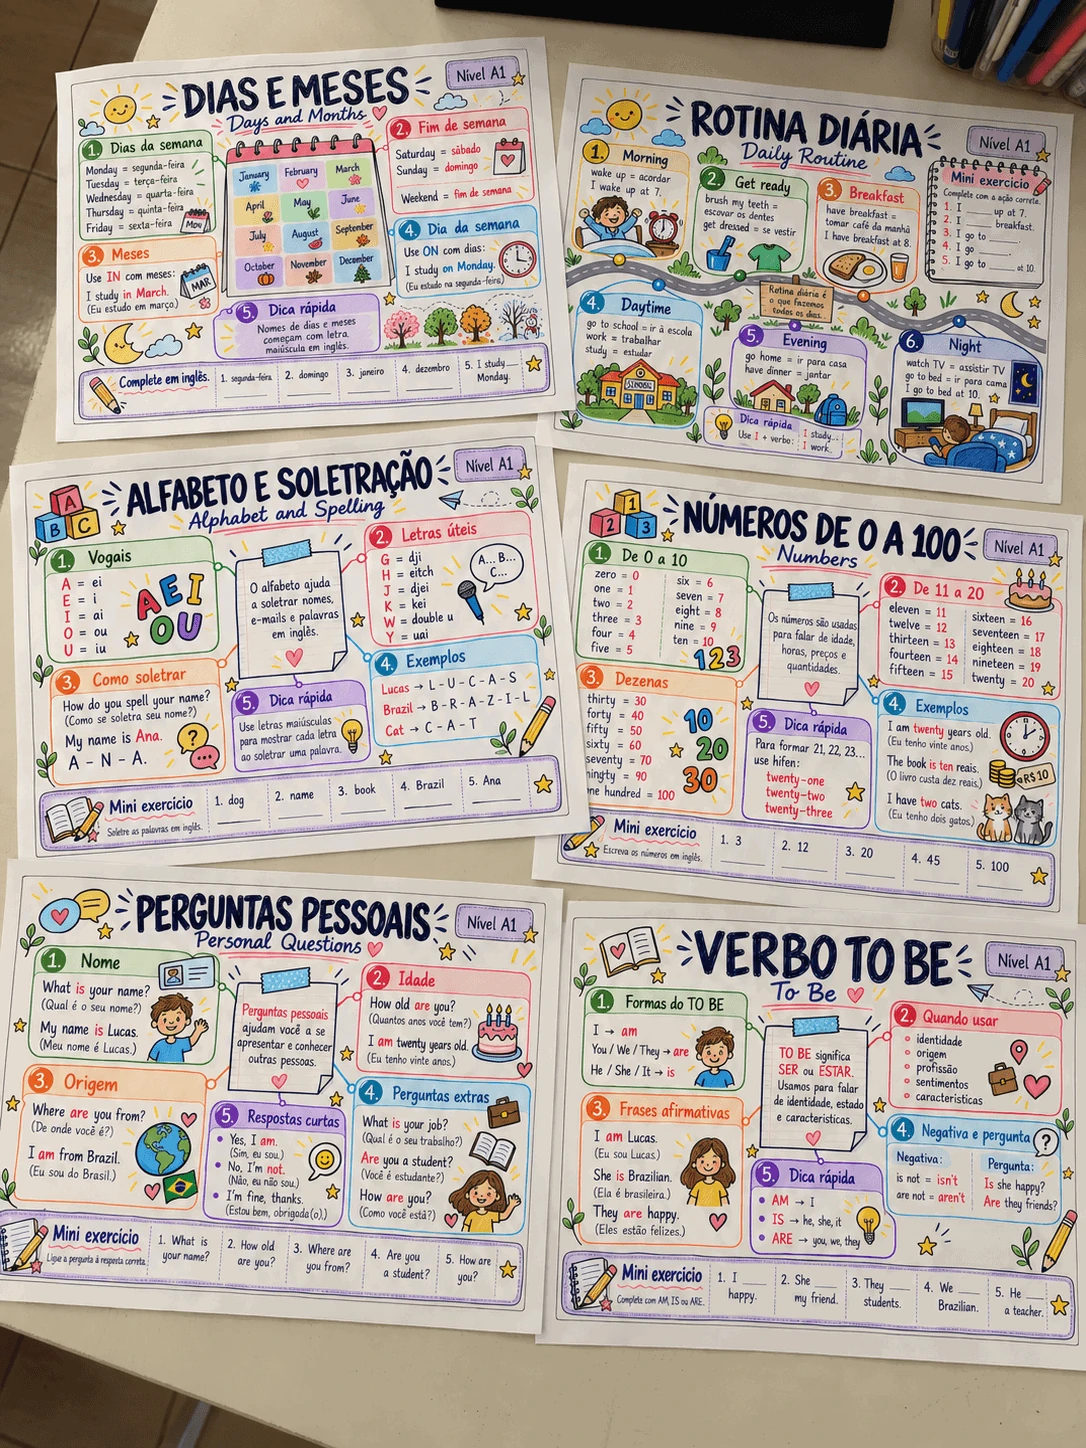 DIAS E MESES
Days and Months
Nível A1
1. Dias da semana
Monday = segunda-feira
Tuesday = terça-feira
Wednesday = quarta-feira
Thursday = quinta-feira
Friday = sexta-feira
Mon
January
February
March
April
May
June
July
August
September
October
November
December
2. Fim de semana
Saturday = sábado
Sunday = domingo
Weekend = fim de semana
3. Meses
Use IN com meses:
I study in March.
(Eu estudo em março)
MAR
4. Dia da semana
Use ON com dias:
I study on Monday.
(Eu estudo na segunda-feira)
5. Dica rápida
Nomes de dias e meses
começam com letra
maiúscula em inglês.
Complete em inglês.
1. segunda-feira
2. domingo
3. janeiro
4. dezembro
5. I study
Monday.
ROTINA DIÁRIA
Daily Routine
Nível A1
1. Morning
wake up = acordar
I wake up at 7.
2. Get ready
brush my teeth =
escovar os dentes
get dressed = se vestir
3. Breakfast
have breakfast =
tomar café da manhã
I have breakfast at 8.
Mini exercício
Complete com a ação correta.
1. I ____ up at 7.
2. I ____ breakfast.
3. I go to ____
4. I go ____
5. I go to ____ at 10.
Rotina diária é
o que fazemos
todos os dias.
4. Daytime
go to school = ir à escola
work = trabalhar
study = estudar
SCHOOL
5. Evening
go home = ir para casa
have dinner = jantar
6. Night
watch TV = assistir TV
go to bed = ir para cama
I go to bed at 10.
Dica rápida
Use I + verbo:
I study...
I work.
ALFABETO E SOLETRAÇÃO
Alphabet and Spelling
Nível A1
A
B C
1. Vogais
A = ei
E = i
I = ai
O = ou
U = iu
AEI
OU
O alfabeto ajuda
a soletrar nomes,
e-mails e palavras
em inglês.
2. Letras úteis
G = dji
H = eitch
J = djei
K = kei
W = double u
Y = uai
A... B...
C...
3. Como soletrar
How do you spell your name?
(Como se soletra seu nome?)
My name is Ana.
A - N - A.
?
4. Exemplos
Lucas → L - U - C - A - S
Brazil → B - R - A - Z - I - L
Cat → C - A - T
5. Dica rápida
Use letras maiúsculas
para mostrar cada letra
ao soletrar uma palavra.
Mini exercício
Soletre as palavras em inglês.
1. dog
2. name
3. book
4. Brazil
5. Ana
NÚMEROS DE 0 A 100
Numbers
Nível A1
1
2 3
1. De 0 a 10
zero = 0
one = 1
two = 2
three = 3
four = 4
five = 5
six = 6
seven = 7
eight = 8
nine = 9
ten = 10
123
Os números são usados
para falar de idade,
horas, preços e
quantidades.
2. De 11 a 20
eleven = 11
twelve = 12
thirteen = 13
fourteen = 14
fifteen = 15
sixteen = 16
seventeen = 17
eighteen = 18
nineteen = 19
twenty = 20
3. Dezenas
thirty = 30
forty = 40
fifty = 50
sixty = 60
seventy = 70
ningty = 90
one hundred = 100
10
20
30
4. Exemplos
I am twenty years old.
(Eu tenho vinte anos)
The book is ten reais.
(O livro custa dez reais)
R$ 10
I have two cats.
(Eu tenho dois gatos)
5. Dica rápida
Para formar 21, 22, 23...
use hífen:
twenty-one
twenty-two
twenty-three
Mini exercício
Escreva os números em inglês.
1. 3
2. 12
3. 20
4. 45
5. 100
PERGUNTAS PESSOAIS
Personal Questions
Nível A1
1. Nome
What is your name?
(Qual é o seu nome?)
My name is Lucas.
(Meu nome é Lucas.)
Perguntas pessoais
ajudam você a se
apresentar e conhecer
outras pessoas.
2. Idade
How old are you?
(Quantos anos você tem?)
I am twenty years old.
(Eu tenho vinte anos.)
3. Origem
Where are you from?
(De onde você é?)
I am from Brazil.
(Eu sou do Brasil.)
4. Perguntas extras
What is your job?
(Qual é o seu trabalho?)
Are you a student?
(Você é estudante?)
How are you?
(Como você está?)
5. Respostas curtas
Yes, I am.
(Sim, eu sou.)
No, I'm not.
(Não, eu não sou.)
I'm fine, thanks.
(Estou bem, obrigado(o).)
Mini exercício
Ligue a pergunta à resposta correta.
1. What is
your name?
2. How old
are you?
3. Where are
you from?
4. Are you
a student?
5. How are
you?
VERBO TO BE
To Be
Nível A1
1. Formas do TO BE
I → am
You / We / They → are
He / She / It → is
TO BE significa
SER ou ESTAR.
Usamos para falar
de identidade, estado
e características.
2. Quando usar
identidade
origem
profissão
sentimentos
características
3. Frases afirmativas
I am Lucas.
(Eu sou Lucas.)
She is Brazilian.
(Ela é brasileira.)
They are happy.
(Eles estão felizes.)
4. Negativa e pergunta
?
Negativa:
is not = isn't
are not = aren't
Pergunta:
Is she happy?
Are they friends?
5. Dica rápida
AM → I
IS → he, she, it
ARE → you, we, they
Mini exercício
Complete com AM, IS ou ARE.
1. I ____
happy.
2. She ____
my friend.
3. They ____
students.
4. We ____
Brazilian.
5. He ____
a teacher.